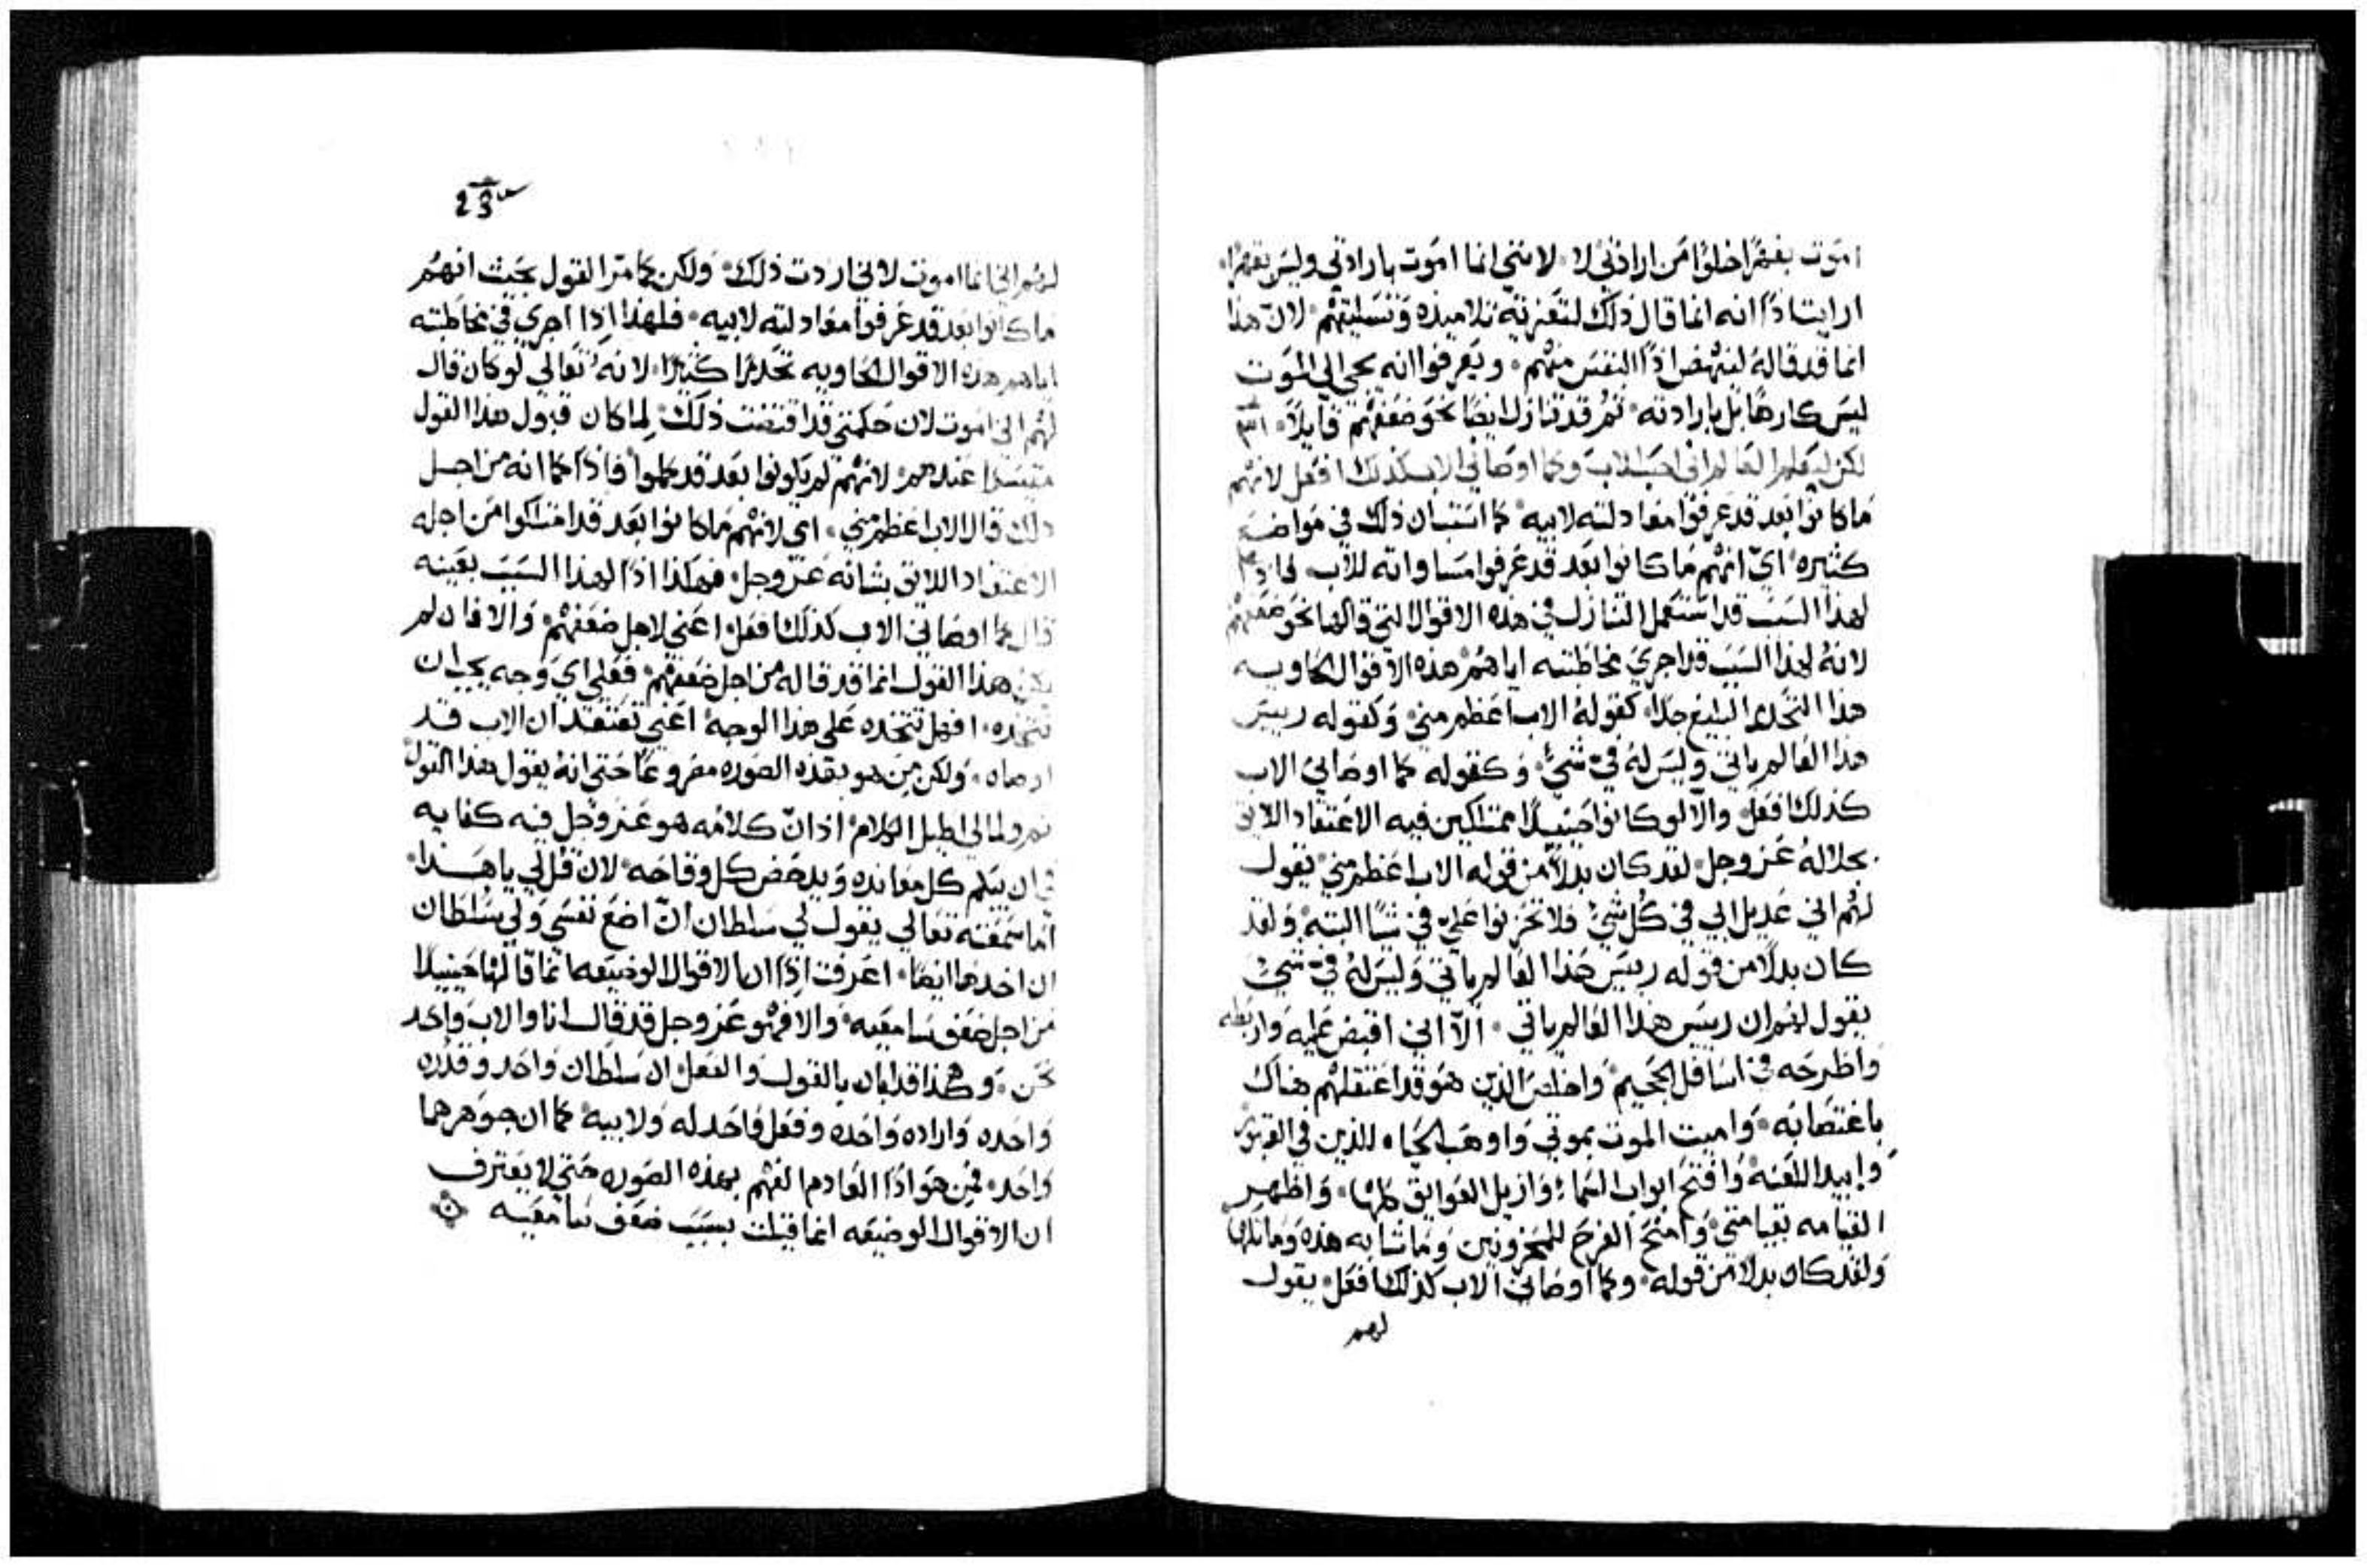 اموت بقهرًا خلوًا من ارادتي لا. لانني انما اموت بارادتي وليس بقهرًا.
ارايت اذًا انه انما قال ذلك لتعزية تلاميذه وتسليتهم. لان هذا
انما قد قاله لينهض اذًا النفس منهم. ويعرفوا انه يجي الى الموت
ليس كارهًا بل بارادته. ثم قد تنازل ايضًا نحو ضعفهم قايلاً. ٣١
لكن ليعلم العالم اني احب الاب وكما اوصاني الاب كذلك افعل لانهم
ما كانوا بعد قد عرفوا معادلته لابيه. كما استبان ذلك في مواضع
كثيره. اي انهم ما كانوا بعد قد عرفوا مساواته للاب
لهذا السبب قد استعمل التنازل في هذه الاقوال التي قالها نحو ضعفهم
لانه لهذا السبب قد اجري مخاطبته اياهم هذه الاقوال الحاويه
هذا التحدر البليغ جدًا. كقوله الاب اعظم مني. وكقوله رييس
هذا العالم ياتي وليس له في شيء. وكقوله كما اوصاني الاب
كذلك افعل. والا لو كانوا حينيذًا ممتلكين فيه الاعتقاد اللايق
بجلاله عز وجل. لقد كان بدلاً من قوله الاب اعظم مني. يقول
لهم اني عديل ابي في كل شيء. فلا تحزنوا علي في شيًا البته. ولقد
كان بدلاً من قوله رييس هذا العالم ياتي وليس له في شيء
يقول لهم ان رييس هذا العالم ياتي. الا اني اقبض عليه واربطه
واطرحه في اسافل الجحيم. واخلص الذين هو قد اعتقلهم هناك
باغتصابه. واميت الموت بموتي واوهب الحياه للذين في القبور
وابيد اللعنه. وافتح ابواب السماء. وازيل العوايق كلها. واظهر
القيامه بقيامتي. وامنح الفرح للمحزونين وما شابه هذه وماثلها
ولقد كان بدلاً من قوله. وكما اوصاني الاب كذلك افعل. يقول
لهم
23
لهم اني انما اموت لاني اردت ذلك. ولكن كما مر القول بحيث انهم
ما كانوا بعد قد عرفوا معادلته لابيه. فلهذا اذًا اجري في مخاطبته
اياهم هذه الاقوال الحاويه تحدرًا كثيرًا. لانه تعالي لو كان قال
لهم اني اموت لان حكمتي قد اقتضت ذلك. لما كان قبول هذا القول
متيسرًا عندهم. لانهم لم يكونوا بعد قد كملوا. فاذًا كما انه من اجل
ذلك قال الاب اعظم مني. اي لانهم ما كانوا بعد قد امتلكوا من اجله
الاعتقاد اللايق بشانه عز وجل. فهكذا اذًا لهذا السبب بعينه
قال كما اوصاني الاب كذلك افعل. اعني لاجل ضعفهم. والا فان لم
يكن هذا القول انما قد قاله من اجل ضعفهم. فعلي اي وجه يجب ان
نتخذه. افهل نتخذه علي هذا الوجه. اعني نعتقد ان الاب قد
اوصاه. ولكن من هو بهذه الصوره مصروعًا حتي انه يقول هذا القول
ثم ولما لي اطيل الكلام. اذ ان كلامه هو عز وجل فيه كفايه
في ان يبكم كل معانده ويدحض كل وقاحه. لان قل لي يا هذا.
اما سمعته تعالي يقول لي سلطان ان اضع نفسي ولي سلطان
ان اخذها ايضًا. اعرفت اذًا ان الاقوال الوضيعه انما قالها حينيذًا
من اجل ضعف سامعيه. والا فهو عز وجل قد قال انا والاب واحد
نحن. وهكذا قد ابان بالقول والفعل ان سلطان واحد وقدره
واحده واراده واحده وفعل واحد له ولابيه. كما ان جوهرهما
واحد. فمن هو اذًا العادم الفهم بهذه الصوره حتي لا يعترف
ان الاقوال الوضيعه انما قيلت بسبب ضعف سامعيه ن